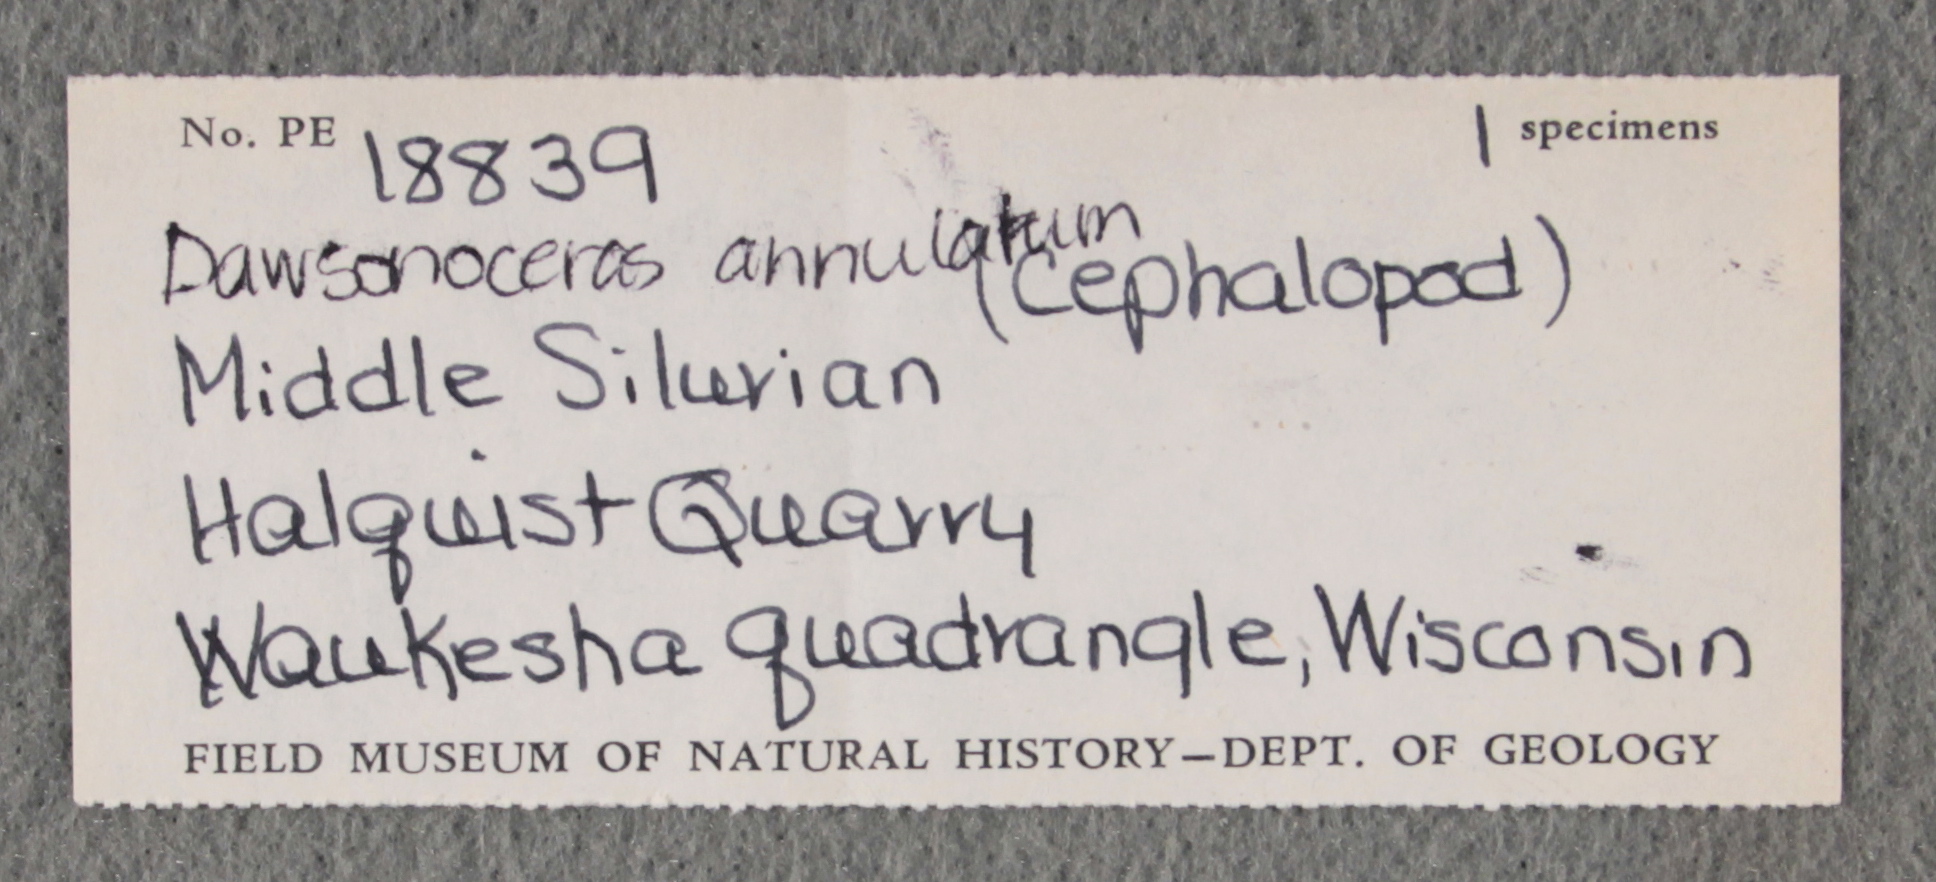 No. PE 18839 1 specimens
Dawsonoceras annulatum (Cephalopod)
Middle Silurian
Halquist Quarry
Waukesha quadrangle, Wisconsin
FIELD MUSEUM OF NATURAL HISTORY—DEPT. OF GEOLOGY